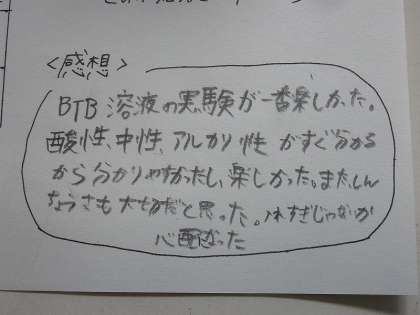 <感想>
BTB溶液の実験が一番楽しかった。
酸性、中性、アルカリ性がすぐ分かる
から分かりやすかったし、楽しかった。また、しん
ちょうさも大切だと思った。入れすぎじゃないか
心配だった